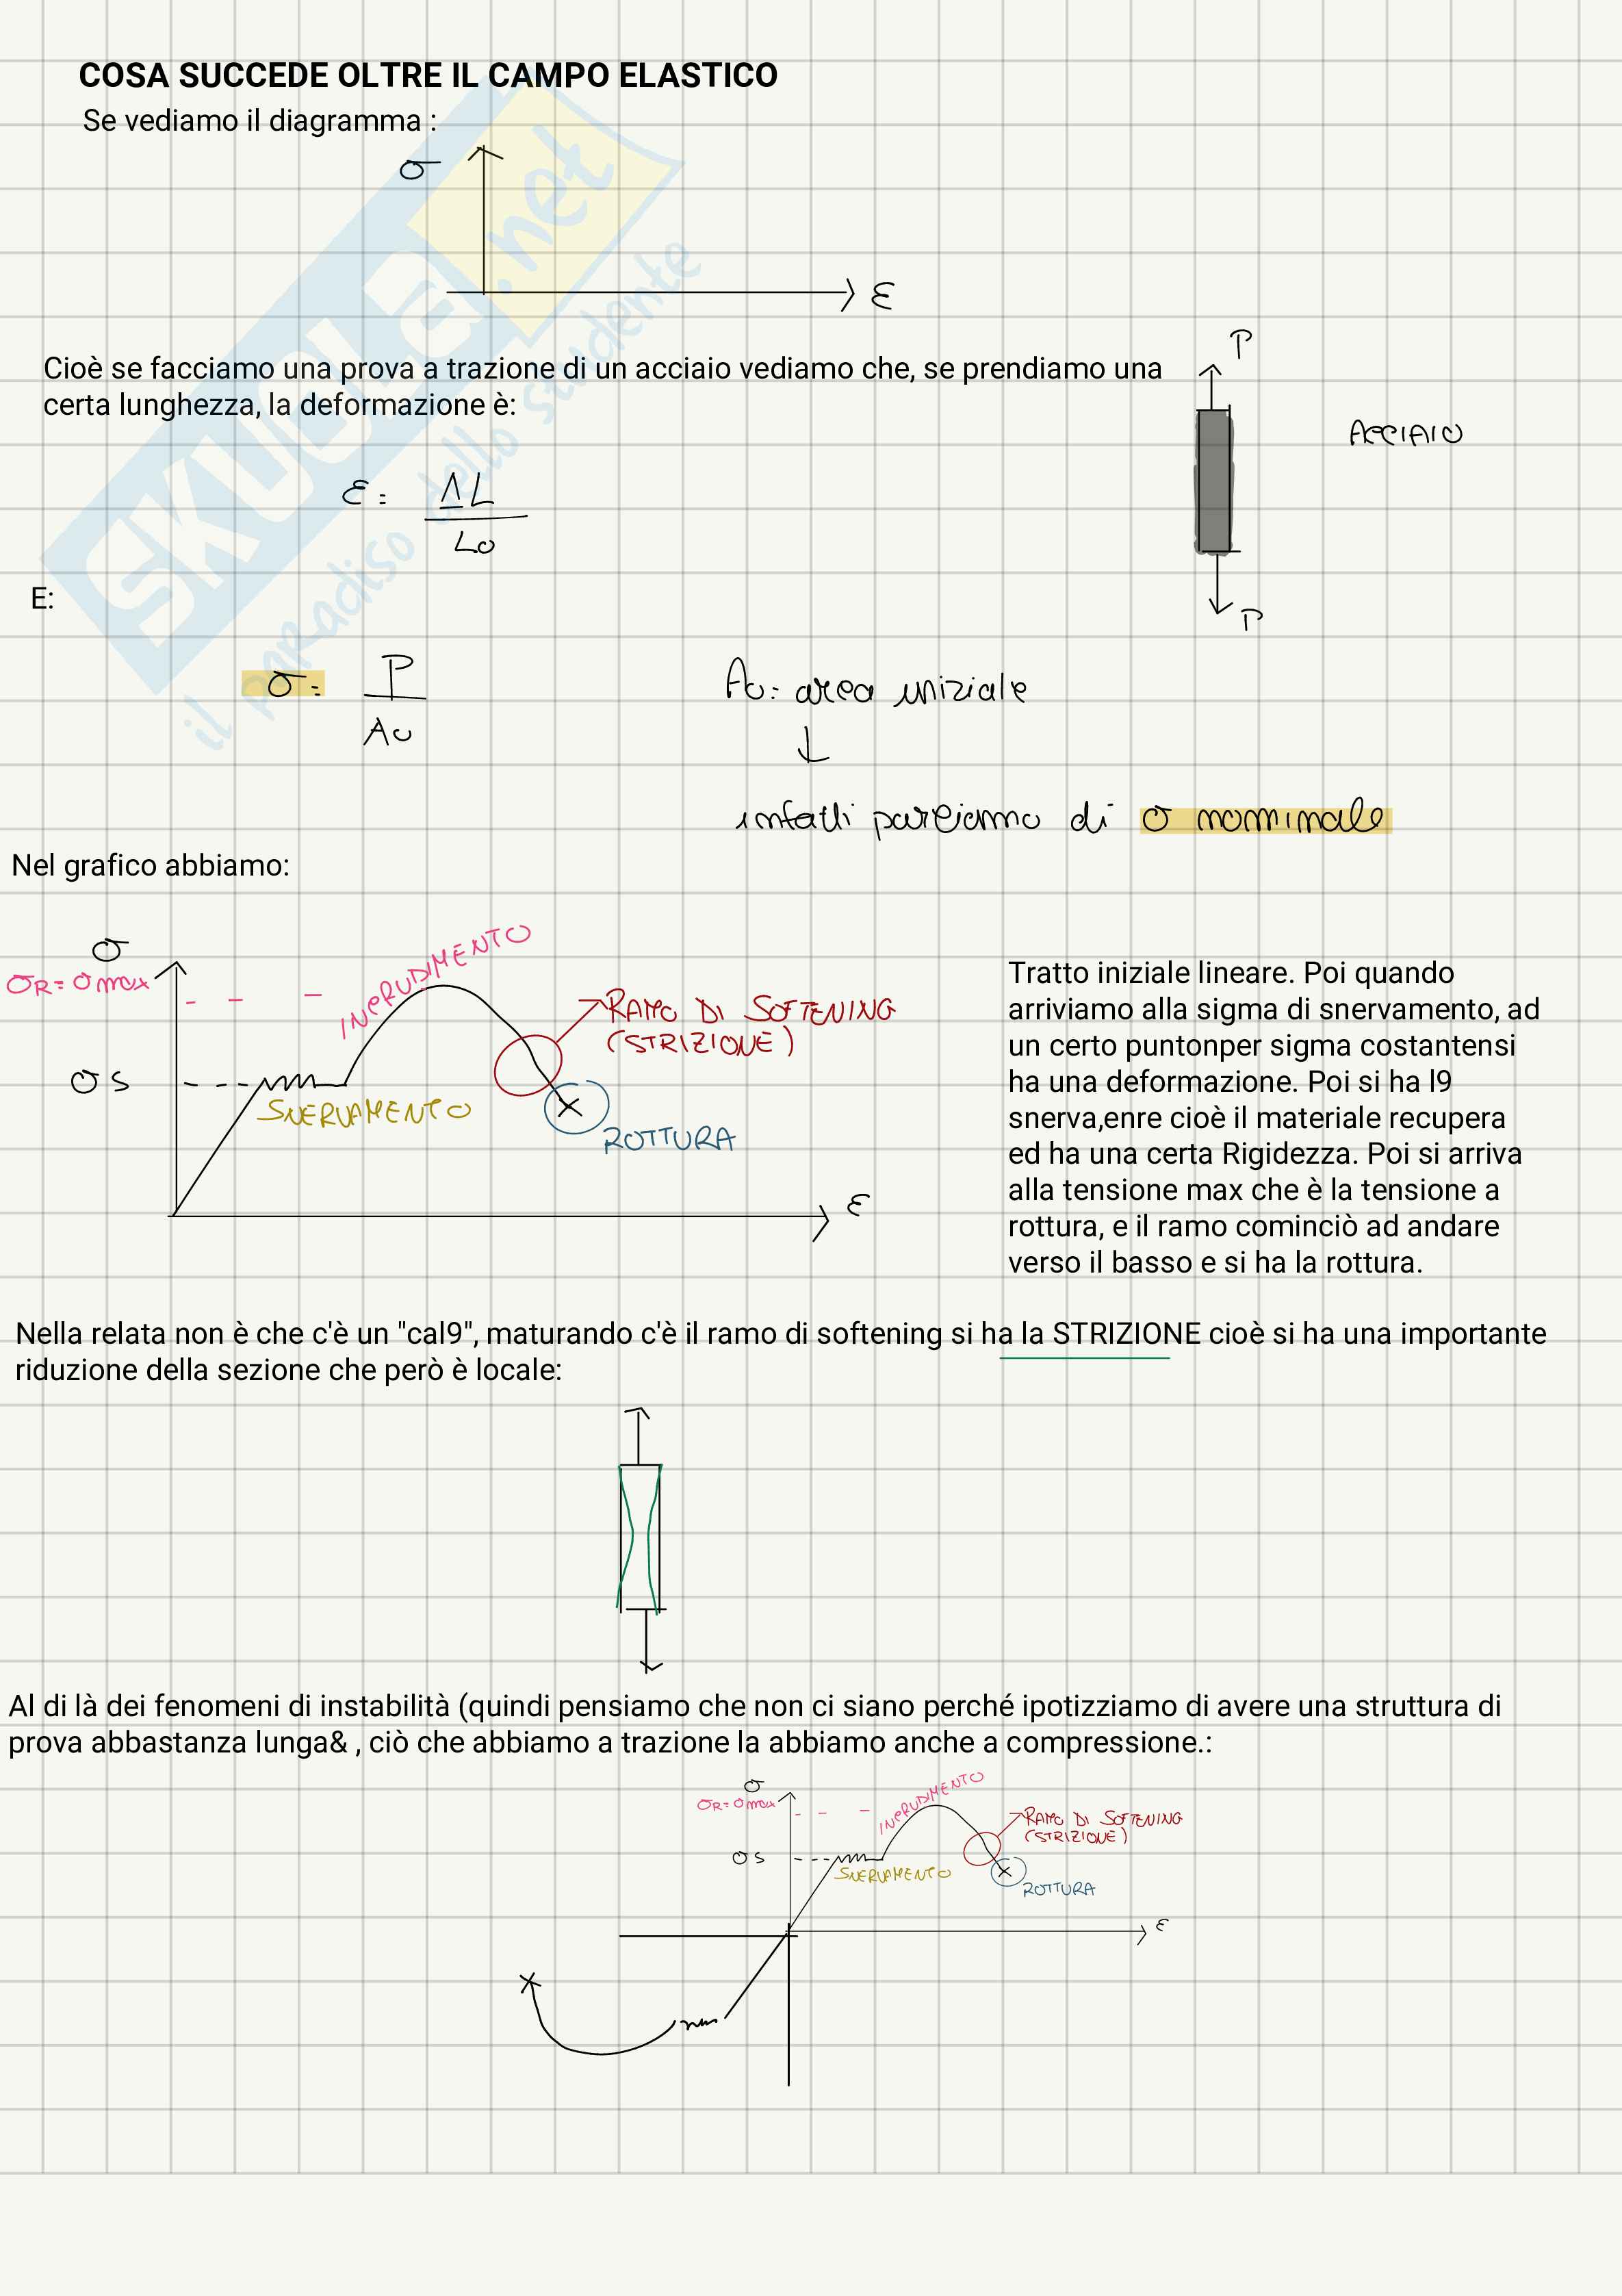 COSA SUCCEDE OLTRE IL CAMPO ELASTICO
Se vediamo il diagramma :
σ
ε
SKUOLA.net
il paradiso dello studente
Cioè se facciamo una prova a trazione di un acciaio vediamo che, se prendiamo una
certa lunghezza, la deformazione è:
P
ACCIAIO
P
ε = ΔL
L0
E:
σ = P
A0
A0 = area iniziale
↓
infatti parliamo di σ nominale
Nel grafico abbiamo:
σ
σR = σ max
INCRUDIMENTO
RAMO DI SOFTENING
(STRIZIONE)
σ S
SNERVAMENTO
ROTTURA
ε
Tratto iniziale lineare. Poi quando
arriviamo alla sigma di snervamento, ad
un certo puntonper sigma costantensi
ha una deformazione. Poi si ha l9
snerva,enre cioè il materiale recupera
ed ha una certa Rigidezza. Poi si arriva
alla tensione max che è la tensione a
rottura, e il ramo cominciò ad andare
verso il basso e si ha la rottura.
Nella relata non è che c'è un "cal9", maturando c'è il ramo di softening si ha la STRIZIONE cioè si ha una importante
riduzione della sezione che però è locale:
Al di là dei fenomeni di instabilità (quindi pensiamo che non ci siano perché ipotizziamo di avere una struttura di
prova abbastanza lunga& , ciò che abbiamo a trazione la abbiamo anche a compressione.:
σ
σR = σ max
INCRUDIMENTO
RAMO DI SOFTENING
(STRIZIONE)
σ S
SNERVAMENTO
ROTTURA
ε